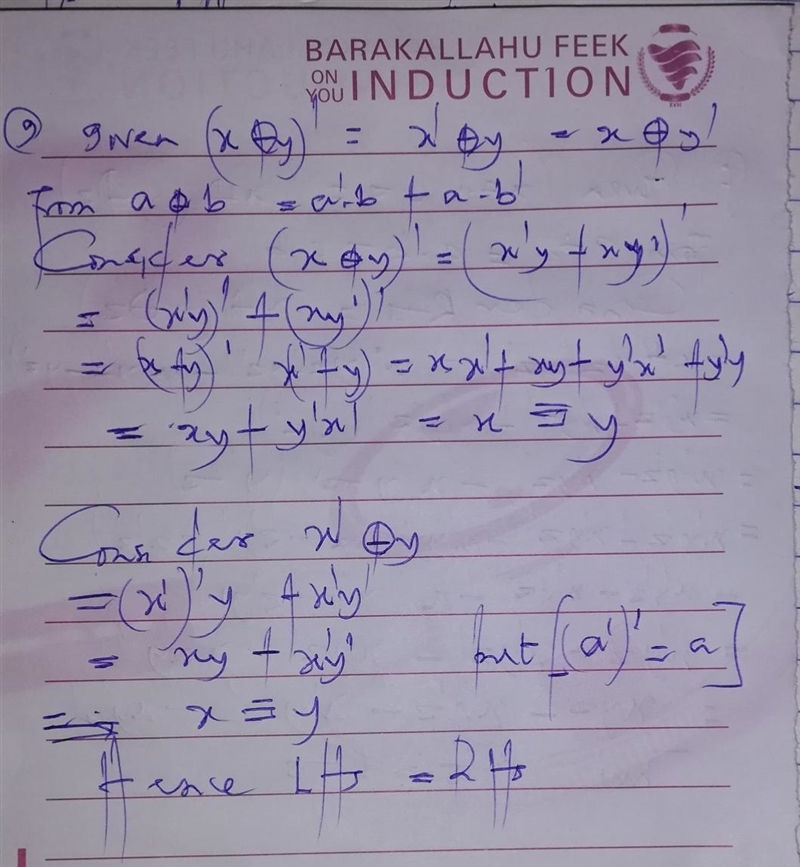 BARAKALLAHU FEEK
ON YOU INDUCTION
9) Given (x ⊕ y)' = x' ⊕ y = x ⊕ y'
From a ⊕ b = a'.b + a.b'
Consider (x ⊕ y)' = (x'y + xy')'
= (x'y)' + (xy')'
= (x+y)' (x'+y) = xx' + xy + y'x' + y'y
= xy + y'x' = x ≡ y
Consider x' ⊕ y
= (x')'y + x'y'
= xy + x'y' but [(a')' = a]
= x ≡ y
Hence LHs = RHs